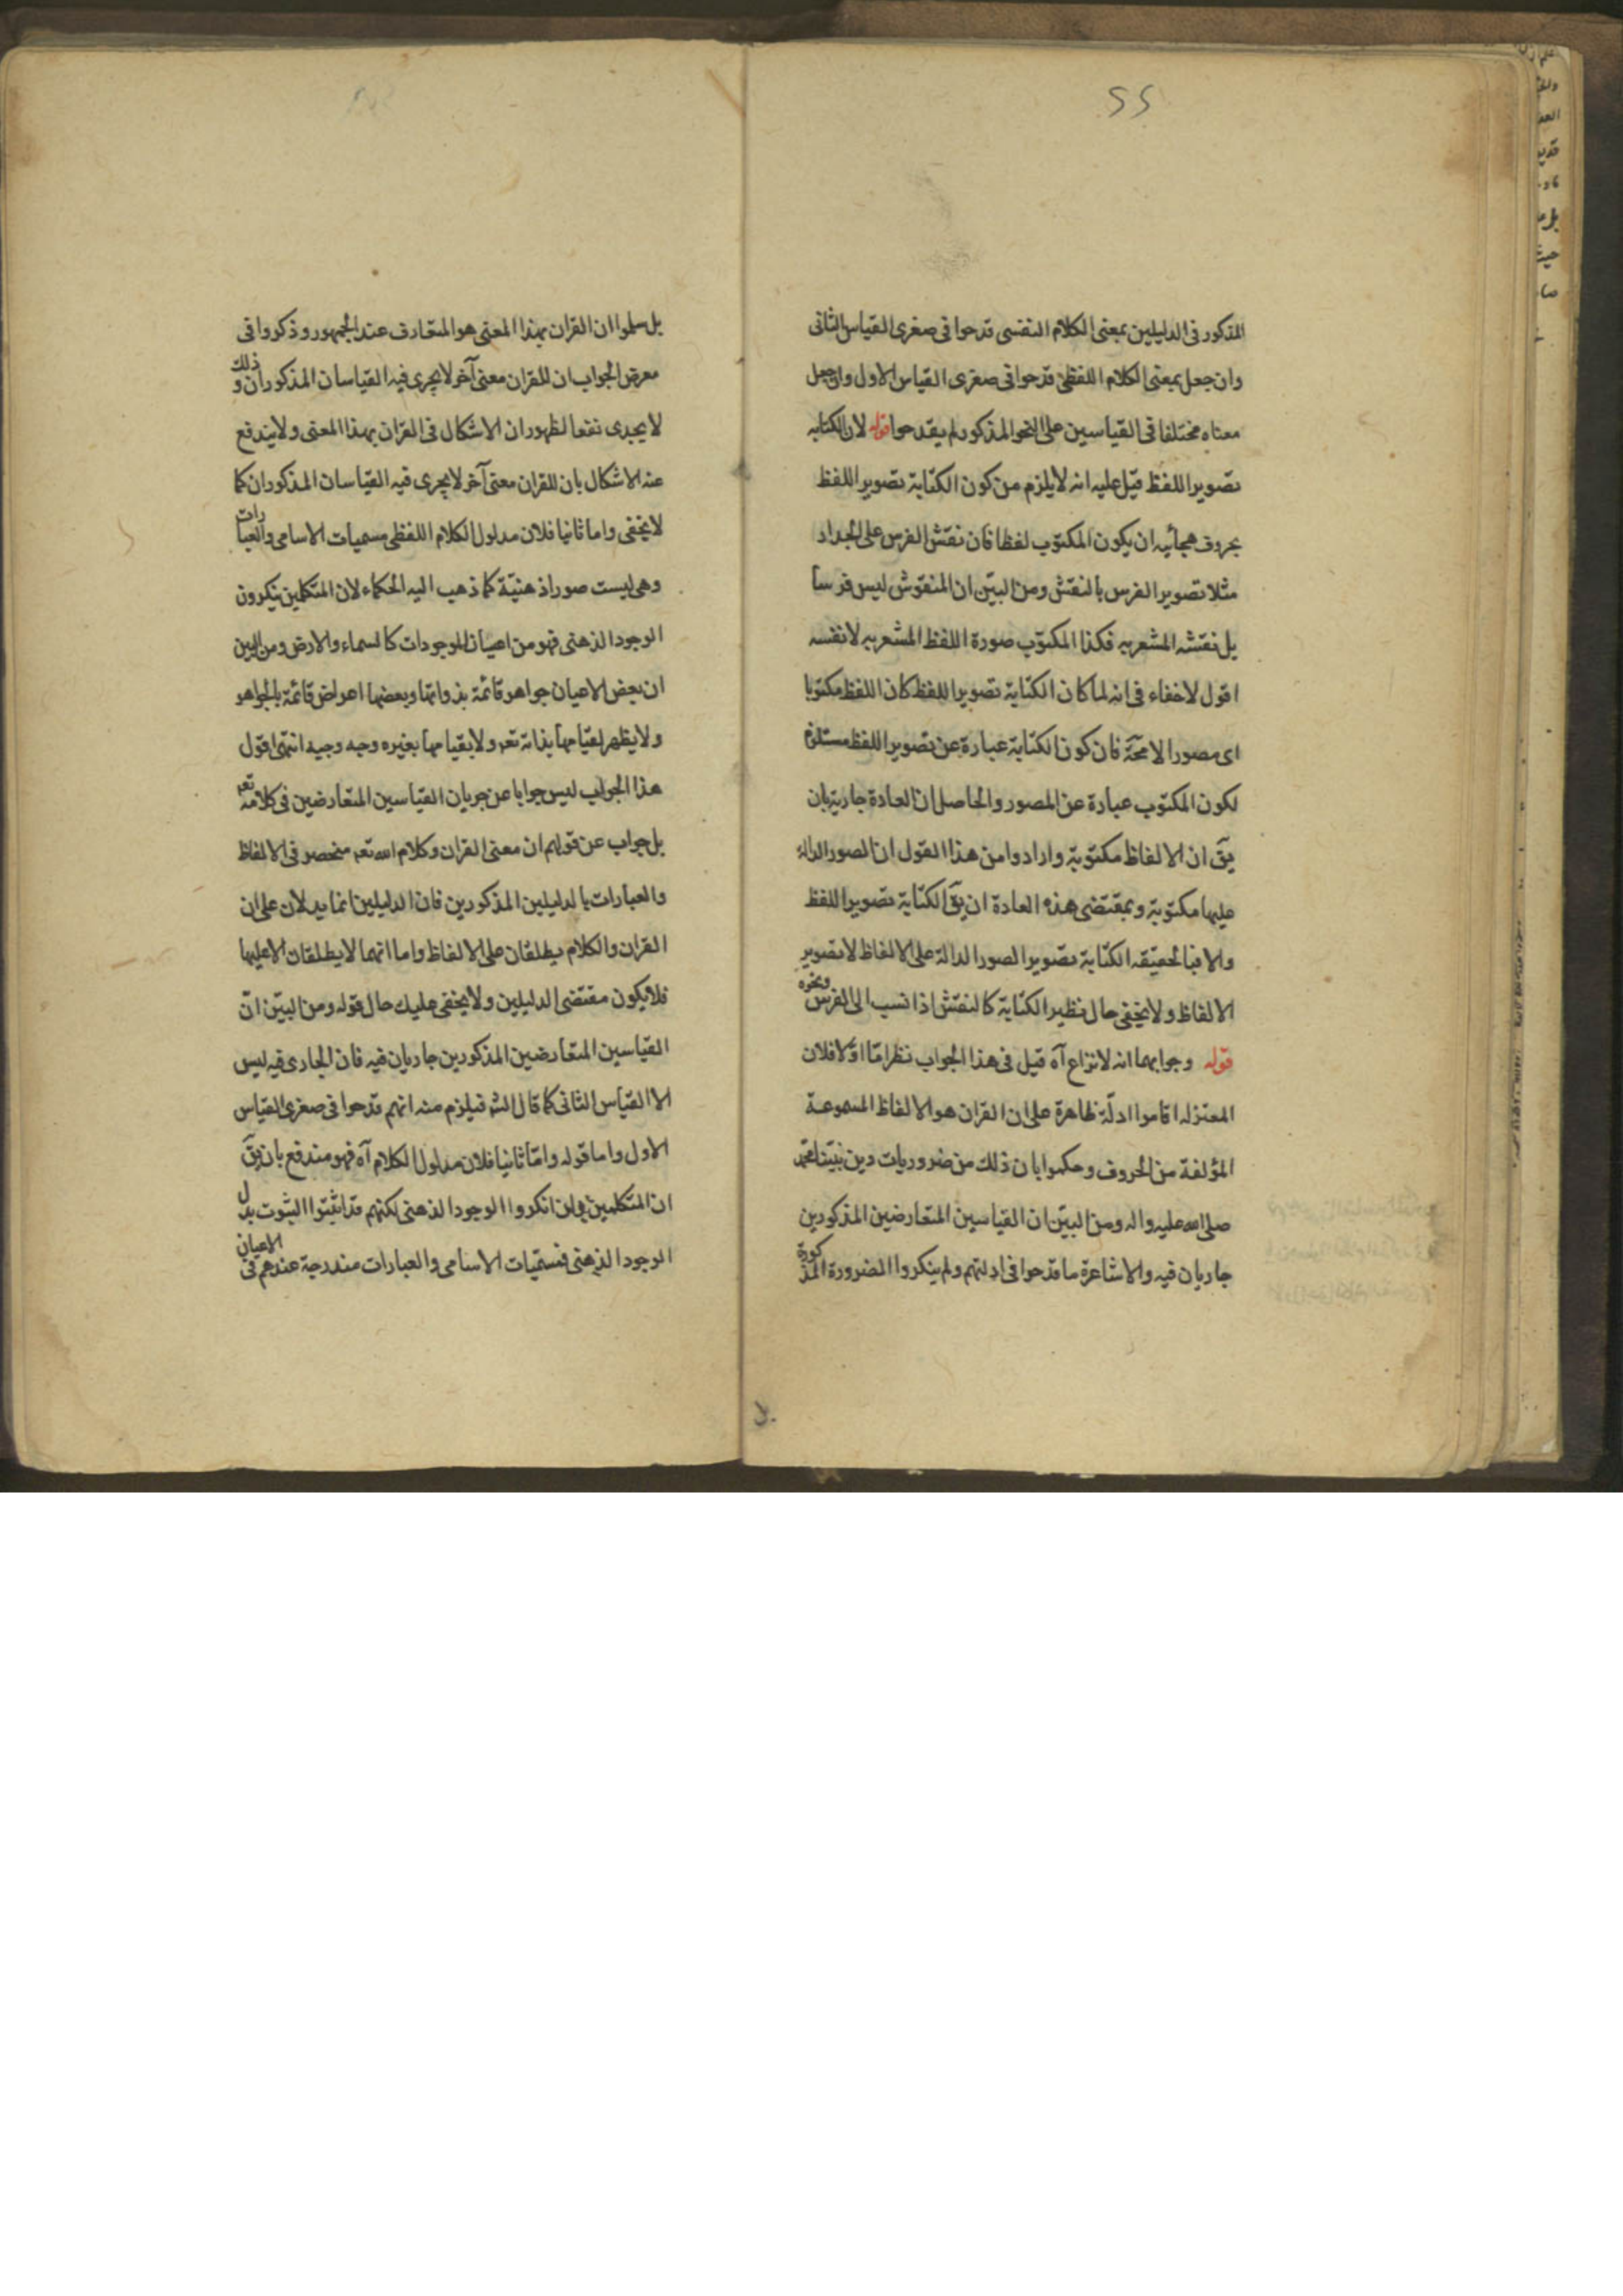 المذكور فى الدليلين بمعنى الكلام النفسى قدحوا فى صغرى القياس الثانى
وان جعل بمعنى الكلام اللفظى قدحوا فى صغرى القياس الاول وان جعل
معناه مختلفا فى القياسين على النحو المذكور لم يقدحوا قوله لان الكتابه
تصوير اللفظ قيل عليه انه لا يلزم من كون الكتابة تصوير اللفظ
بحروف هجائيه ان يكون المكتوب لفظا فان نقش الفرس على الجدار
مثلا تصوير الفرس بالنقش ومن البيّن ان المنقوش ليس فرسا
بل نقشه المشعر به فكذا المكتوب صورة اللفظ المشعر به لا نفسه
اقول لا خفاء فى انه لما كان الكتابة تصوير اللفظ كان اللفظ مكتوبا
اى مصورا لا محة فان كون الكتابة عبارة عن تصوير اللفظ مستلزم
لكون المكتوب عبارة عن المصور والحاصل ان العادة جارية بان
يق ان الالفاظ مكتوبة وارادوا من هذا القول ان الصور الدالة
عليها مكتوبة وبمقتضى هذه العادة ان يق الكتابة تصوير اللفظ
والا فبالحقيقه الكتابة تصوير الصور الدالة على الالفاظ لا تصوير
الالفاظ ولا يخفى حال نظير الكتابة كالنقش اذا نسب الى الفرس ونحوه
قوله وجوابهما انه لا نزاع آه قيل فى هذا الجواب نظر امّا اوّلا فلان
المعتزله اقاموا ادلّة ظاهرة على ان القران هو الالفاظ المسموعة
المؤلفة من الحروف وحكموا بان ذلك من ضروريات دين نبيّنا محمد
صلى الله عليه واله ومن البيّن ان القياسين المتعارضين المذكورين
جاريان فيه والاشاعرة ما قدحوا فى ادلتهم ولم ينكروا الضرورة المذكورة
بل سلموا ان القران بهذا المعنى هو المتعارف عند الجمهور وذكروا فى
معرض الجواب ان للقران معنى آخر لا يجرى فيه القياسان المذكوران وذلك
لا يجدى نفعا لظهور ان الاشكال فى القران بهذا المعنى ولا يندفع
عنه الاشكال بان للقران معنى آخر لا يجرى فيه القياسان المذكوران كما
لا يخفى واما ثانيا فلان مدلول الكلام اللفظى مسميات الاسامى والعبارات
وهى ليست صورا ذهنيّة كما ذهب اليه الحكماء لان المتكلمين ينكرون
الوجود الذهنى فهو من اعيان الموجودات كالسماء والارض ومن البين
ان بعض الاعيان جواهر قائمة بذواتها وبعضها اعراض قائمة بالجواهر
ولا يظهر لقيامها بذاته تعه ولا بقيامها بغيره وجه وجيه انتهى اقول
هذا الجواب ليس جوابا عن جريان القياسين المتعارضين فى كلامه تعه
بل جواب عن قولهم ان معنى القران وكلام الله تعه منحصر فى الالفاظ
والعبارات بالدليلين المذكورين فان الدليلين انما يدلان على ان
القران والكلام يطلقان على الالفاظ واما انهما لا يطلقان الا عليها
فلا يكون مقتضى الدليلين ولا يخفى عليك حال قوله ومن البيّن انّ
القياسين المتعارضين المذكورين جاريان فيه فان الجارى فيه ليس
الا القياس الثانى كما قال الشه فيلزم منه انهم قدحوا فى صغرى القياس
الاول واما قوله وامّا ثانيا فلان مدلول الكلام آه فهو مندفع بان يق
ان المتكلمين وان انكروا الوجود الذهنى لكنهم قد اثبتوا الثبوت بدل
الوجود الذهنى فمسمّيات الاسامى والعبارات مندرجة عندهم فى الاعيان